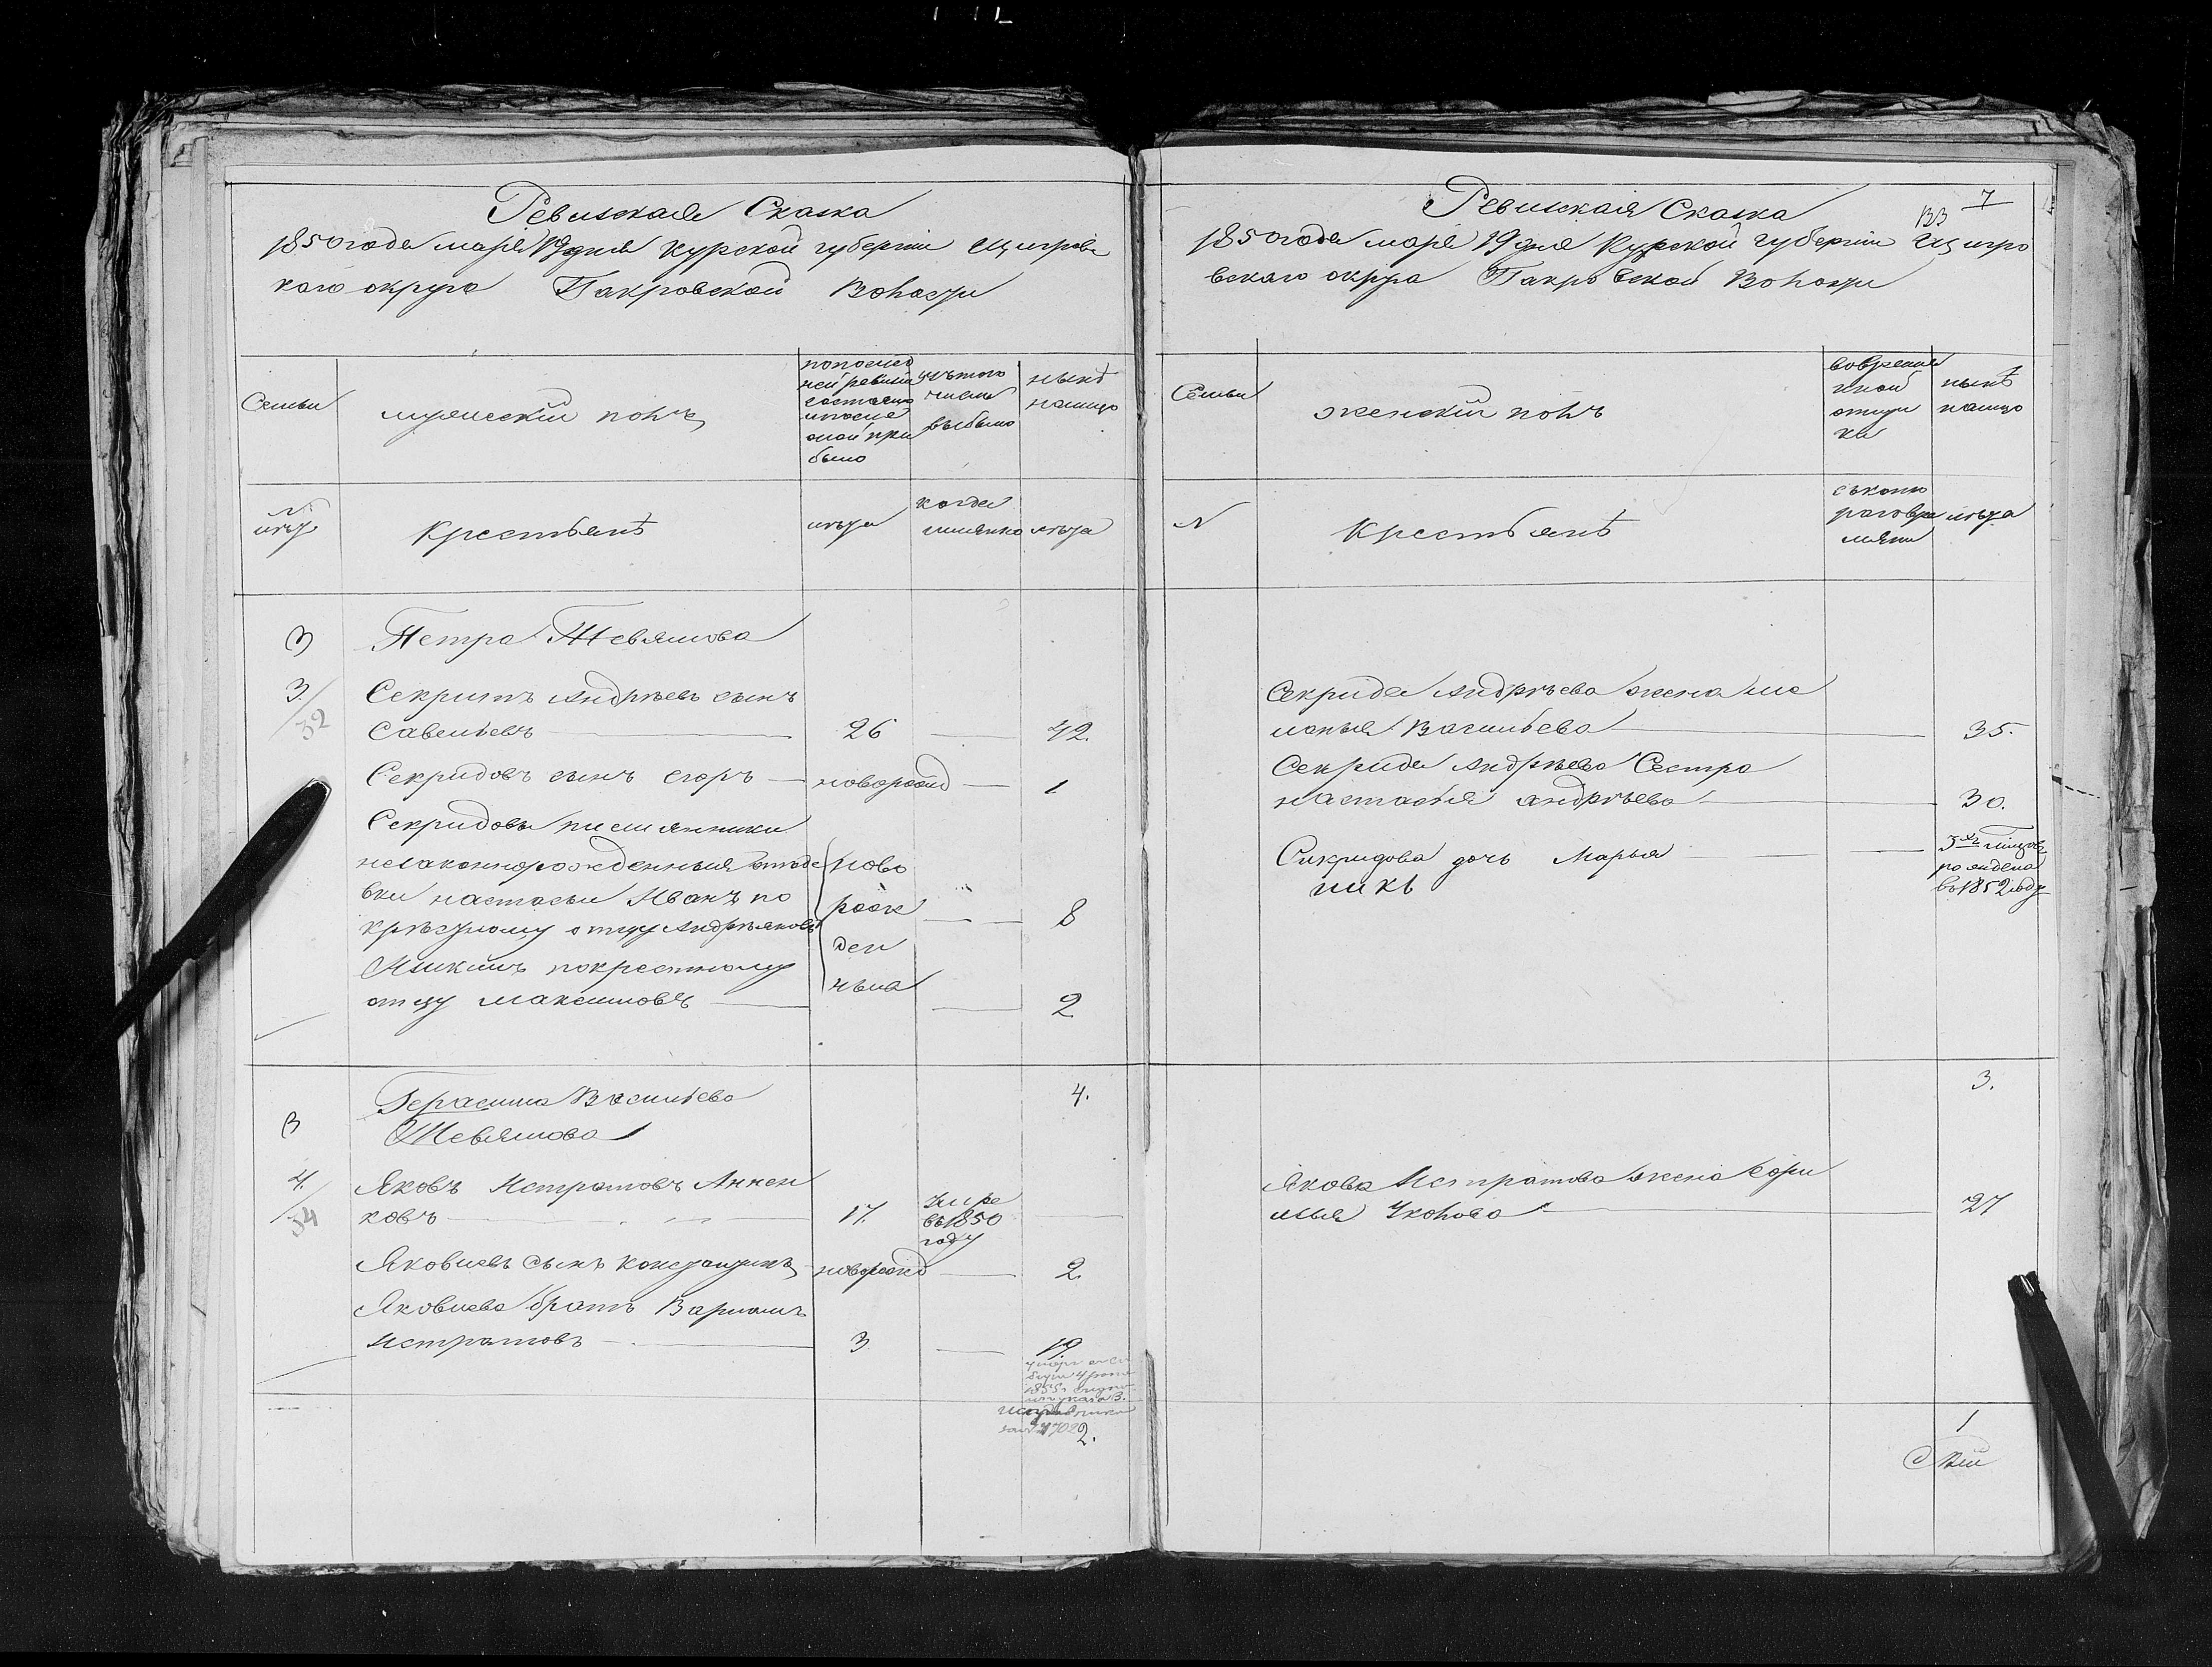 Ревизская Сказка
1850 года марта 19 дня Курской губернии Щигров
каго округа Пакровской Волости
Семьи
мужескій полъ
попослед
ней ревизіи
состояло
ипосле
оной при
было
изъ того
числа
выбыло
ныне
налицо
№
Крестьянѣ
лѣта
когда
имянно
лѣта
3
Петра Шевлякова
3/32
Секритъ Андрѣевъ сынъ
Савельевъ 26 42.
Секридовъ сынъ егоръ новорожд 1
Секридовы племянники
незаконнорожденныя отъ де
вки настасьи Иванъ по
крѣстному отцу Андрѣяновъ 8
Никитъ покрестному
отцу Максимовъ 2
ново
рож
ден
ныя
4.
3
Герасима Васильева
Шевлякова
4/34
Яковъ Истратовъ Аннен
ковъ 17. умре
въ 1850
году
Яковлевъ сынъ констянтинъ новорожд 2
Яковлева братъ Варламъ
Истратовъ 3 19.
2.
Ревизская Сказка
133 7
1850 года мар. 19 дня Курской губерніи Щигро
вскаго округа Пакровской Волости
Семьи
женскій полъ
вовремян
ной
отлу
ке
ныне
налицо
№
Крестьянѣ
съкото
раго вре
мяни
лѣта
Секрида Андрѣева жена ме
ланья Васильева 35.
Секрида Андрѣева Сестра
настасья андрѣева 30.
Сикридова дочь Марья
рождена
въ 1852 году
3.
Якова Истратова жена
27
1